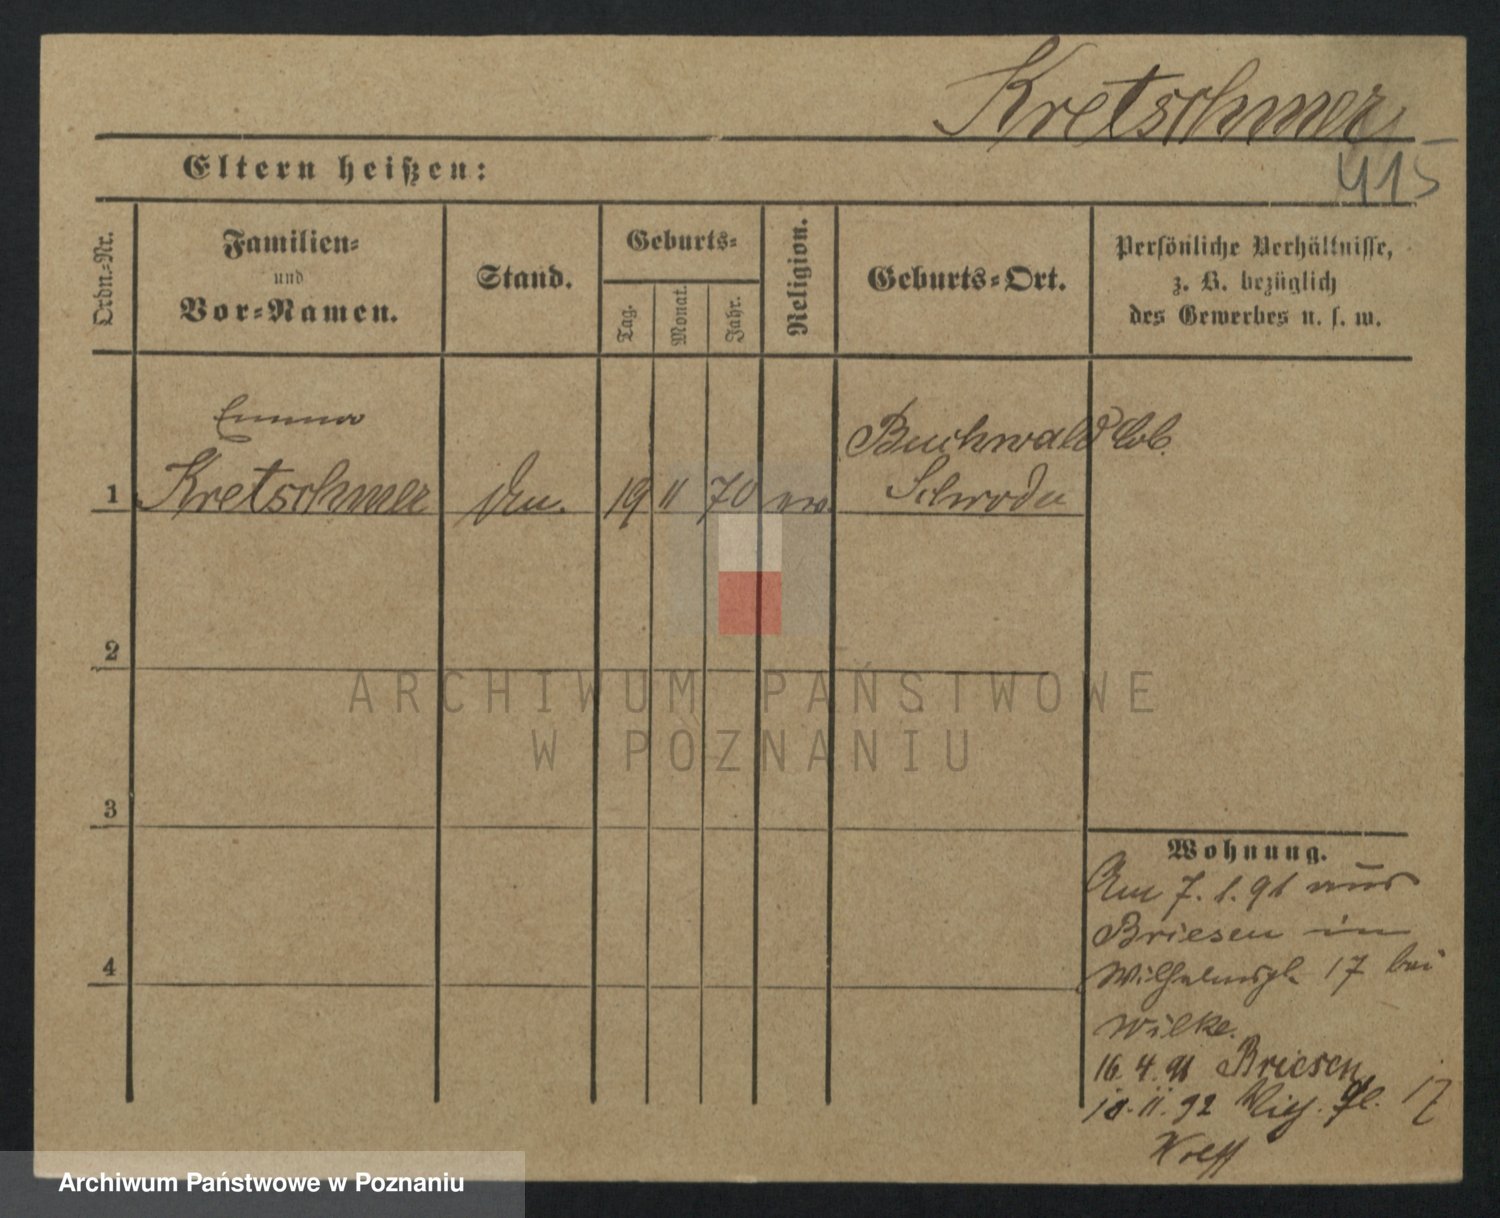 Kretschmer
415
Eltern heißen:
Ordn.-Nr.
Familien-
und
Vor-Namen.
Stand.
Geburts-
Tag.
Monat.
Jahr.
Religion.
Geburts-Ort.
Persönliche Verhältnisse,
z. B. bezüglich
des Gewerbes u. s. w.
Emma
1 Kretschmer
19 11 70 ev.
Buchwald
Schroda
2
3
4
ARCHIWUM PAŃSTWOWE
W POZNANIU
Wohnung.
Am 7.1.91 aus
Briesen in
Wilhelmspl. 17 bei
Wilke.
16.4.91 Briesen
10.11.92 pl. 17
Archiwum Państwowe w Poznaniu